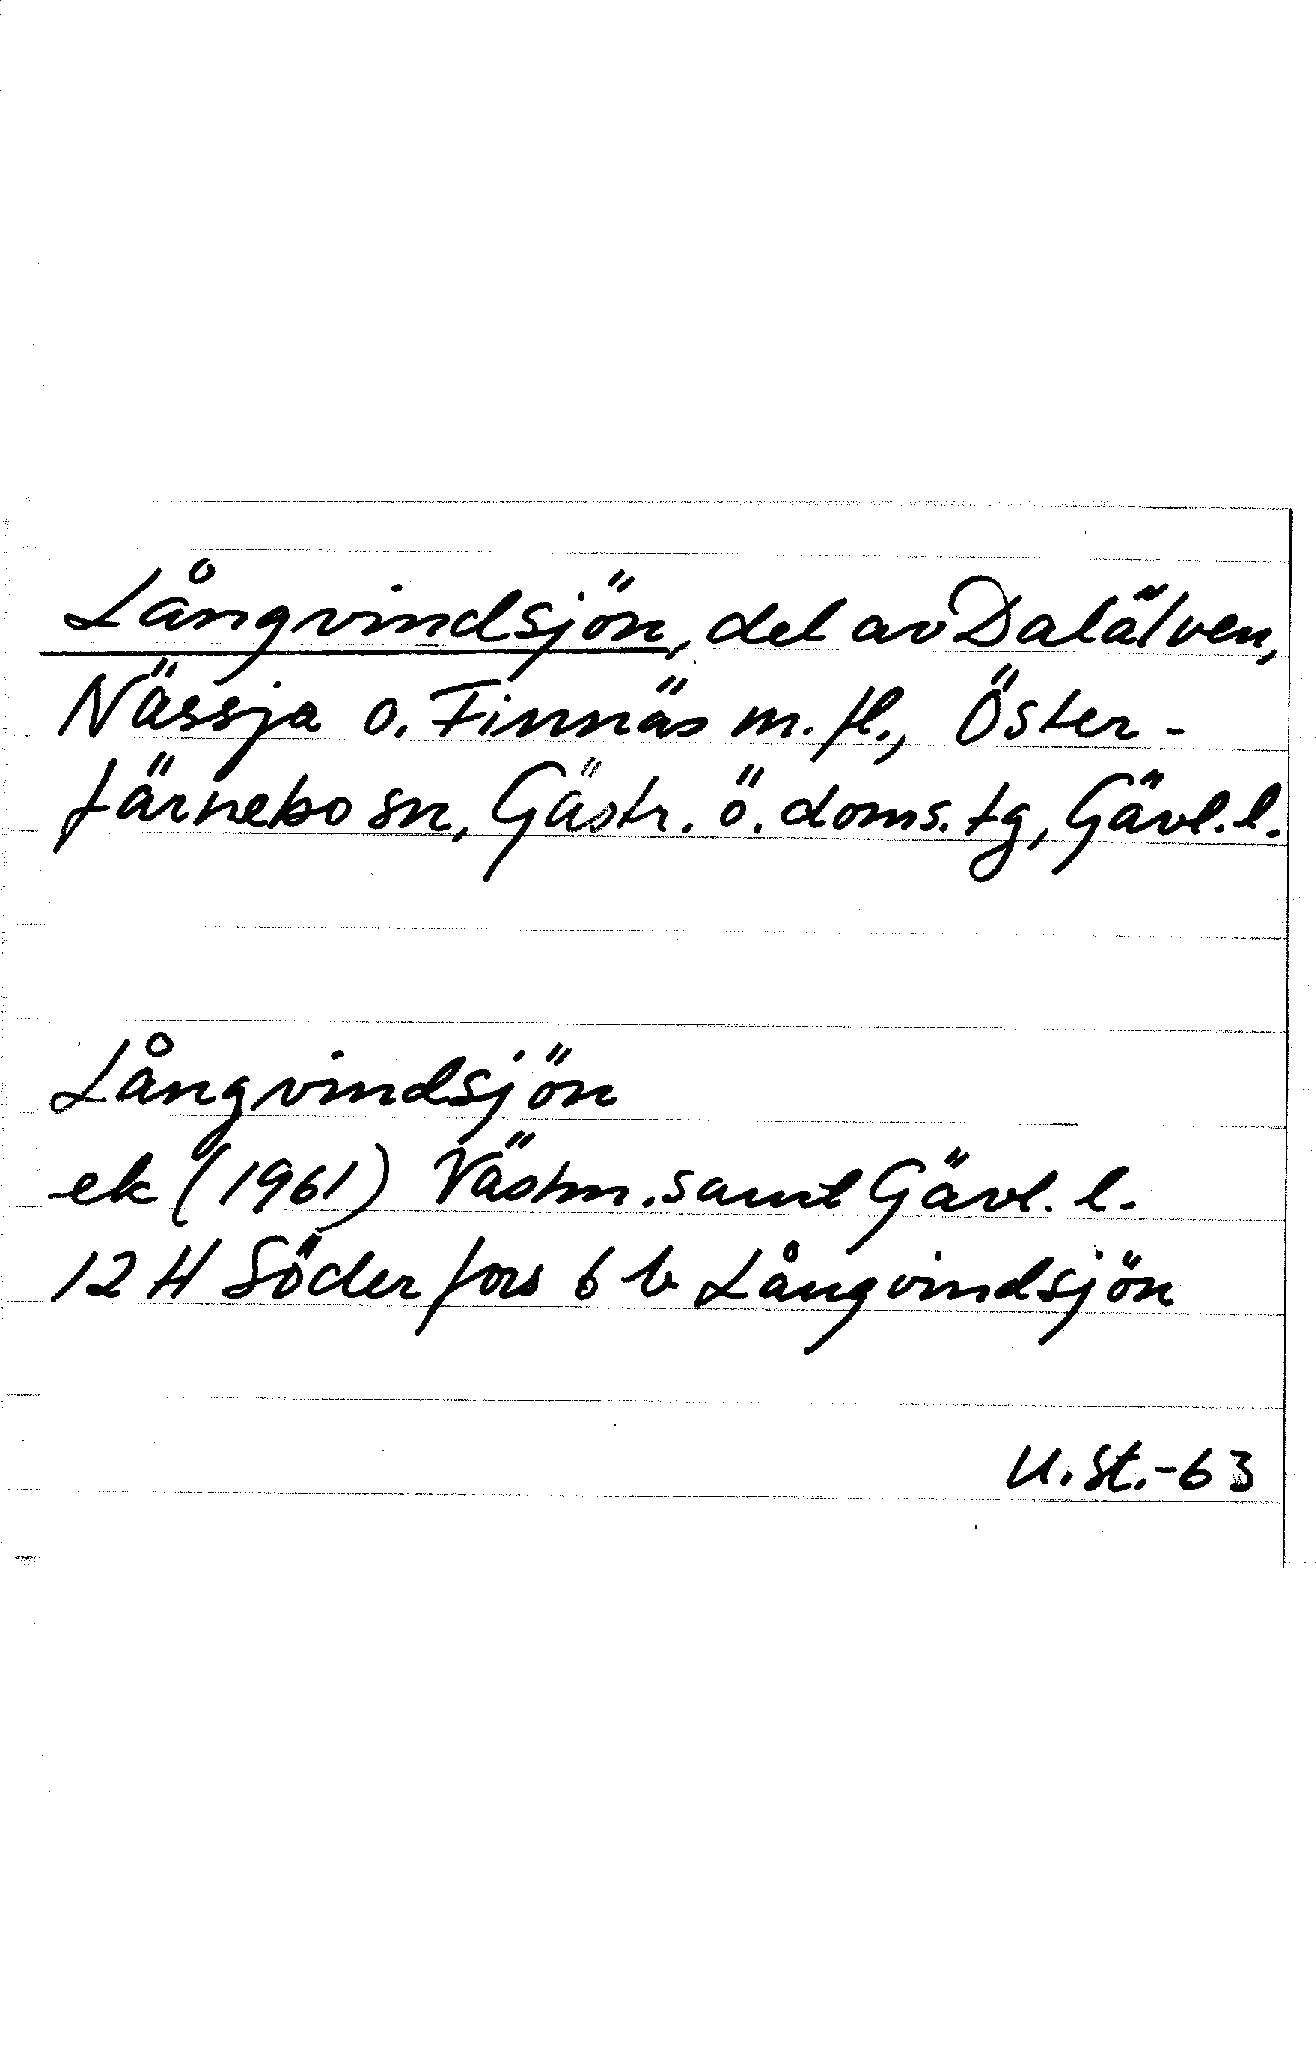 Långvindsjön, del av Dalälven,
Nässja o. Finnäs m.fl., Öster-
färnebo sn, Gästr. ö. doms. tg, Gävl. l.
Långvindsjön
ek (1961) Västm. samt Gävl. l.
12 H Söderfors 6 b Långvindsjön
U. St.-63